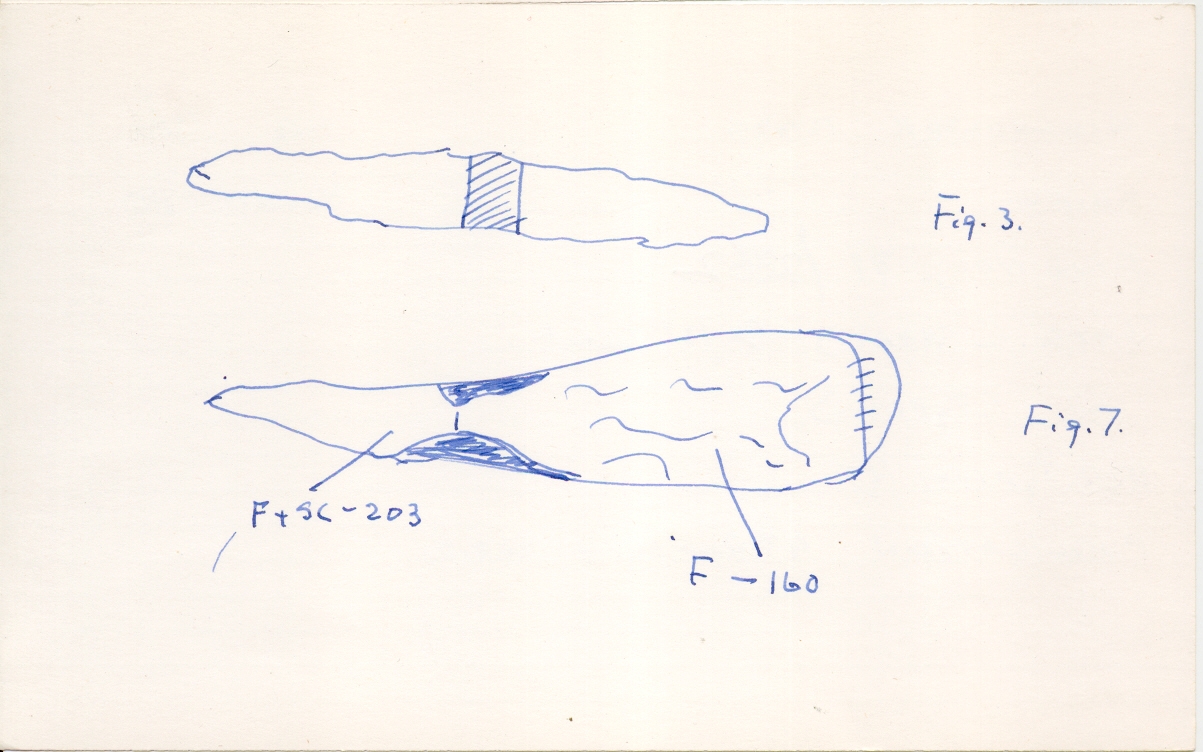 Fig. 3.
Fig. 7.
F+SC-203
F-160